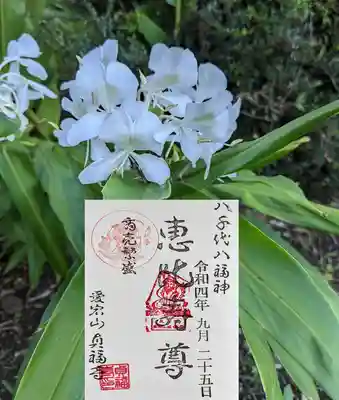 八千代八福神
令和四年九月二十五日
恵比寿尊
商売繁盛
愛宕山貞福寺